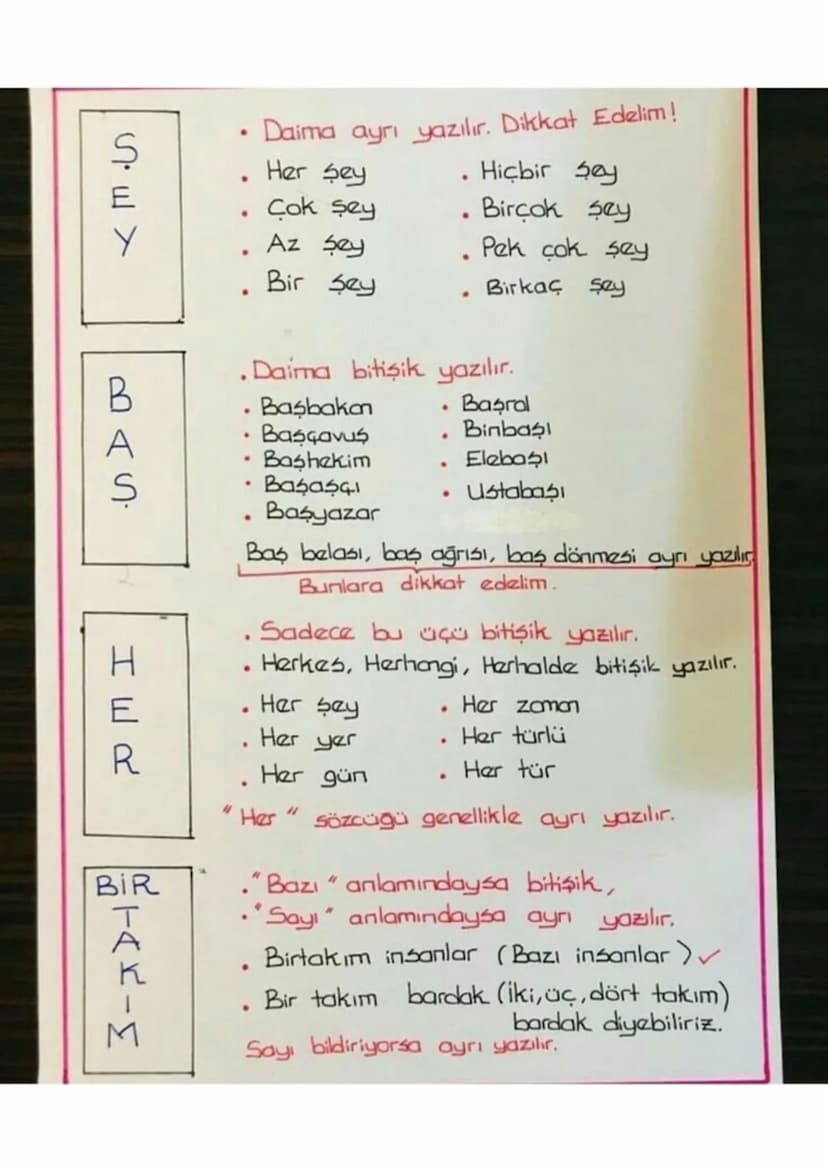 ŞEY
• Daima ayrı yazılır. Dikkat Edelim!
• Her şey
• Çok şey
• Az şey
• Bir şey
• Hiçbir şey
• Birçok şey
• Pek çok şey
• Birkaç şey
BAŞ
• Daima bitişik yazılır.
• Başbakan
• Başçavuş
• Başhekim
• Başaşçı
• Başyazar
• Başrol
• Binbaşı
• Elebaşı
• Ustabaşı
Baş belası, baş ağrısı, baş dönmesi ayrı yazılır
Bunlara dikkat edelim.
HER
• Sadece bu üçü bitişik yazılır.
• Herkes, Herhangi, Herhalde bitişik yazılır.
• Her şey
• Her yer
• Her gün
• Her zaman
• Her türlü
• Her tür
"Her" sözcüğü genellikle ayrı yazılır.
BİR
TAKIM
• "Bazı" anlamındaysa bitişik,
• "Sayı" anlamındaysa ayrı yazılır.
• Birtakım insanlar (Bazı insanlar) ✓
• Bir takım bardak (iki, üç, dört takım)
bardak diyebiliriz.
Sayı bildiriyorsa ayrı yazılır.